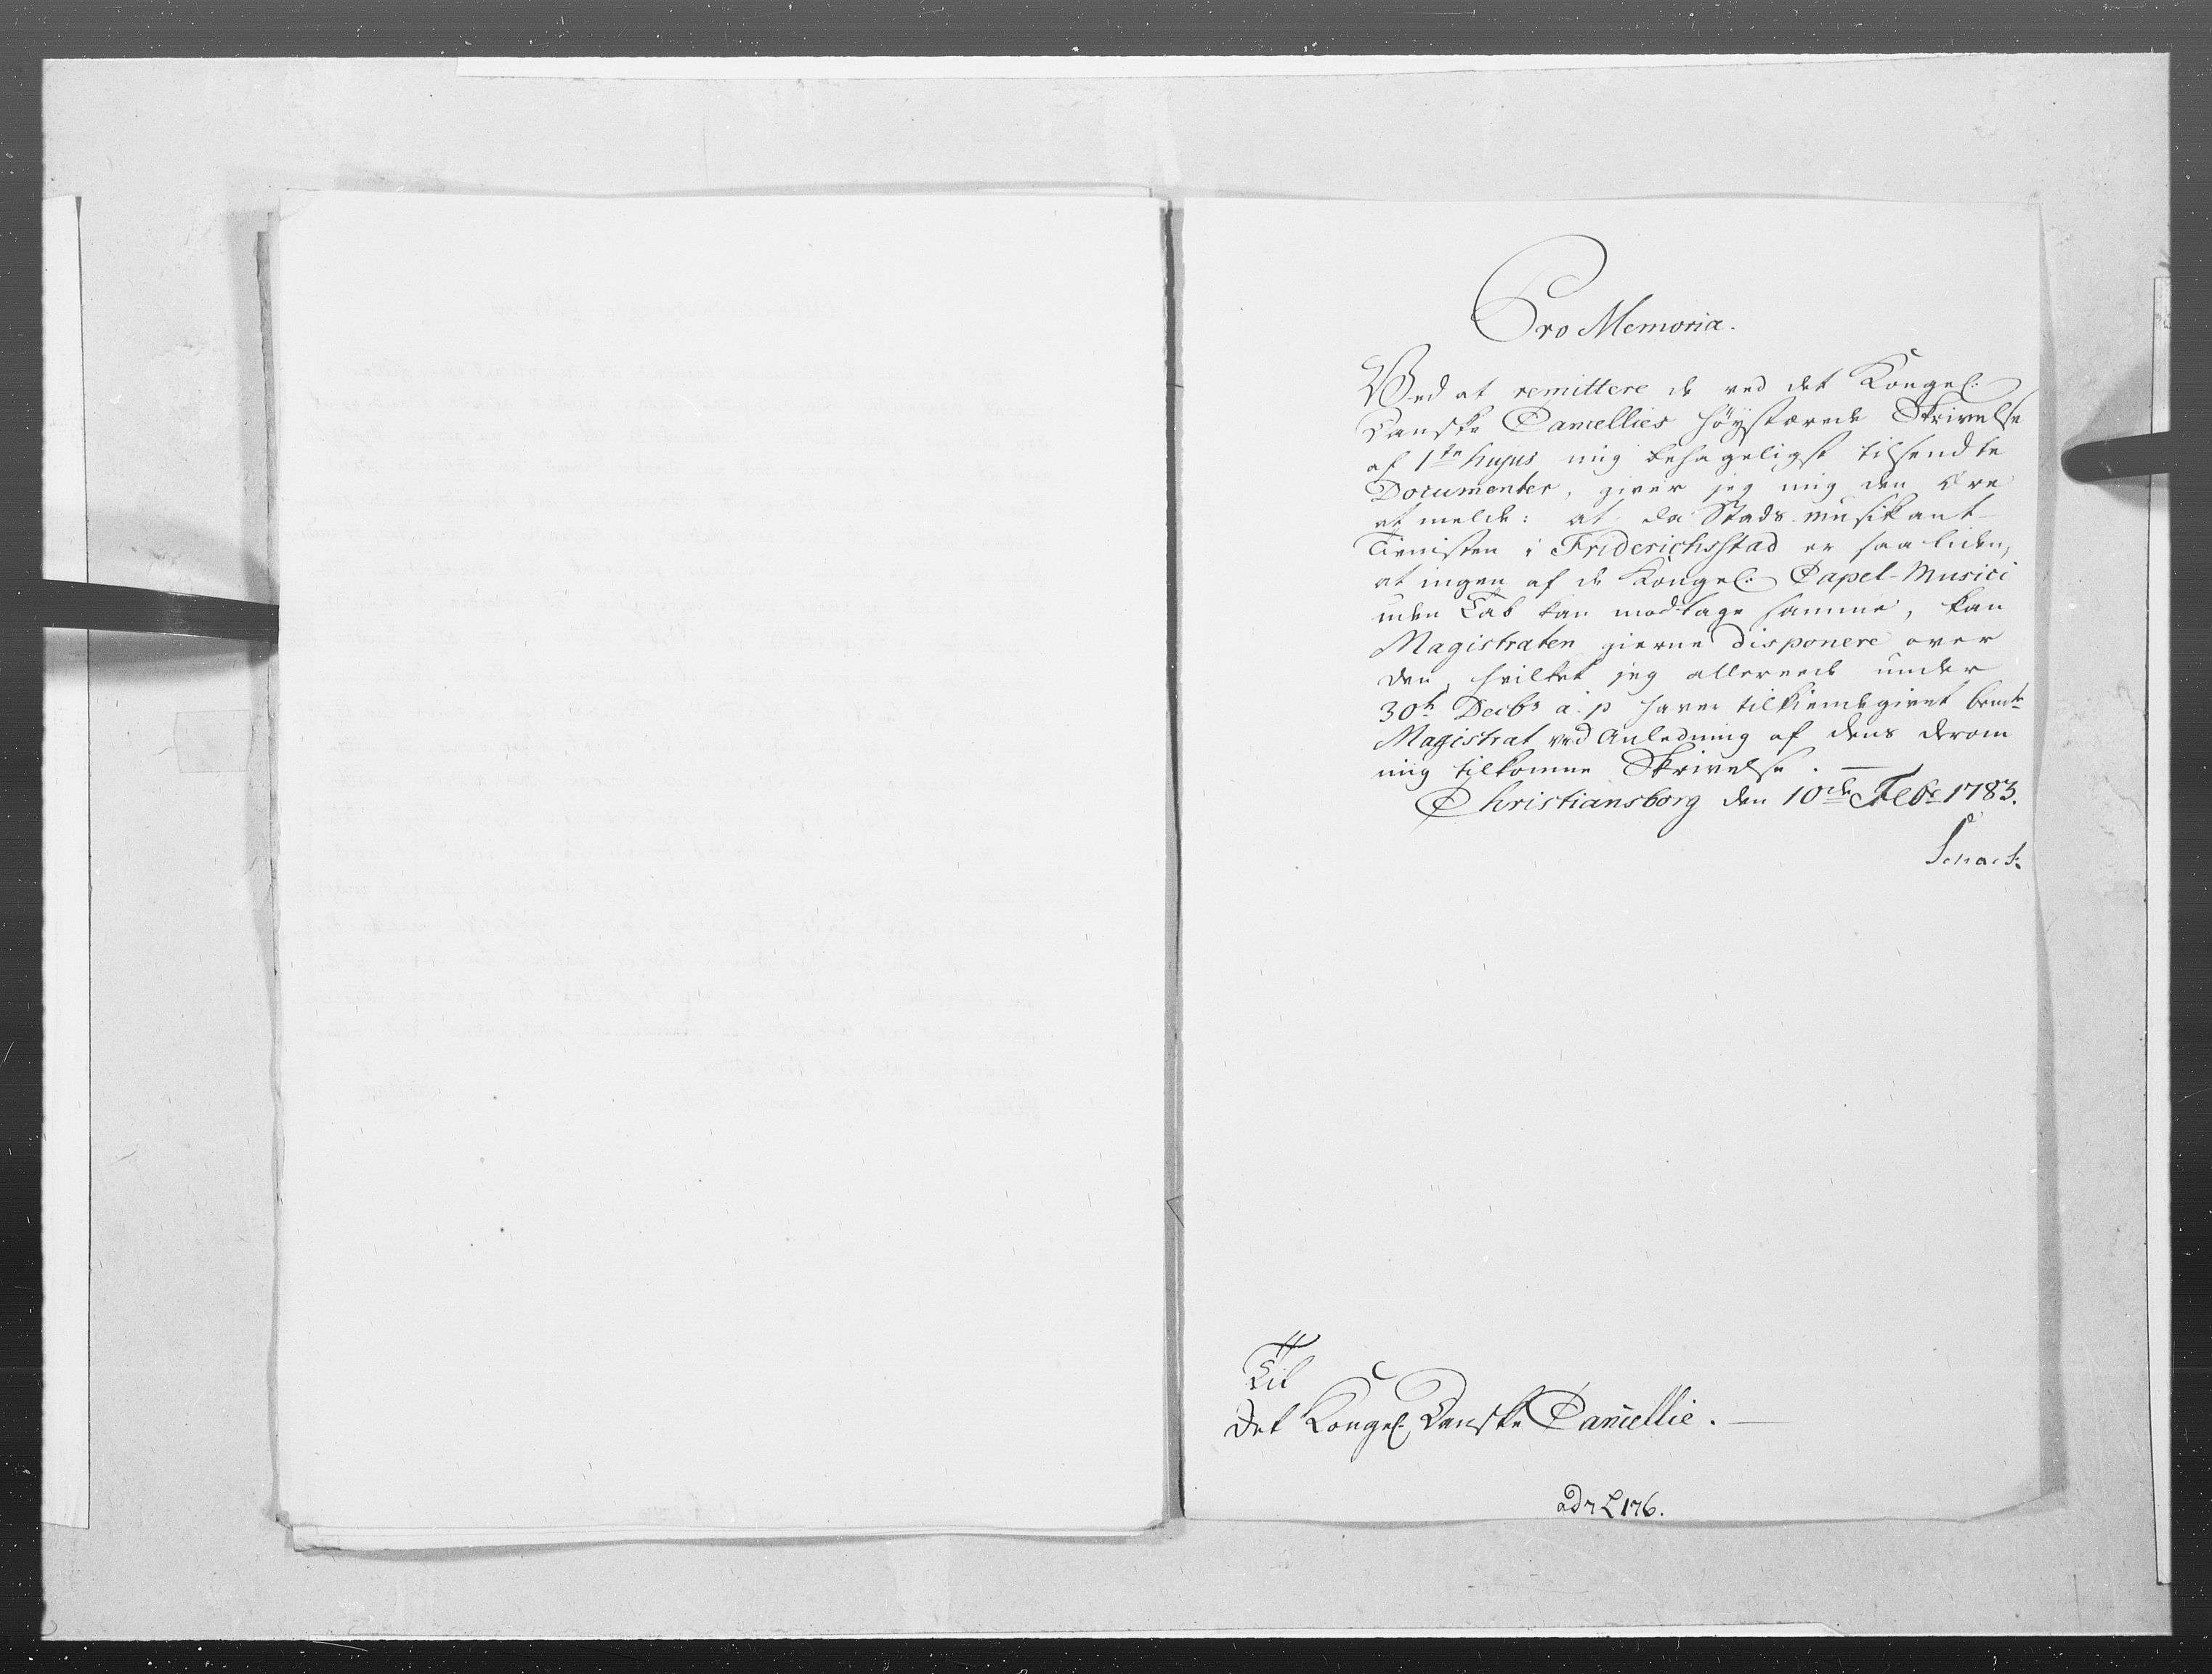 Pro Memoria.
Ved at remittere de ved det Kongel:
Danske Cancellies höystærede Skrivelse
af 1ste hujus mig behageligst tilsendte
Documenter, giver jeg mig den Ære
at melde: at da Stads-Musikant-
Tienisten i Friderichsstad er saa liden,
at ingen af de Kongel: Capel-Musici
uden Tab kan modtage samme, kan
Magistraten gierne disponere over
den, hvilket jeg allereede under
30th Decbr a: p haver tilkiendegivet bemte
Magistrat ved Anledning af dens derom
mig tilkomne Skrivelse. —
Christiansborg den 10de Febr 1783.
Schack.
Til
Det Kongel. Danske Cancellie. —
ad L 176.